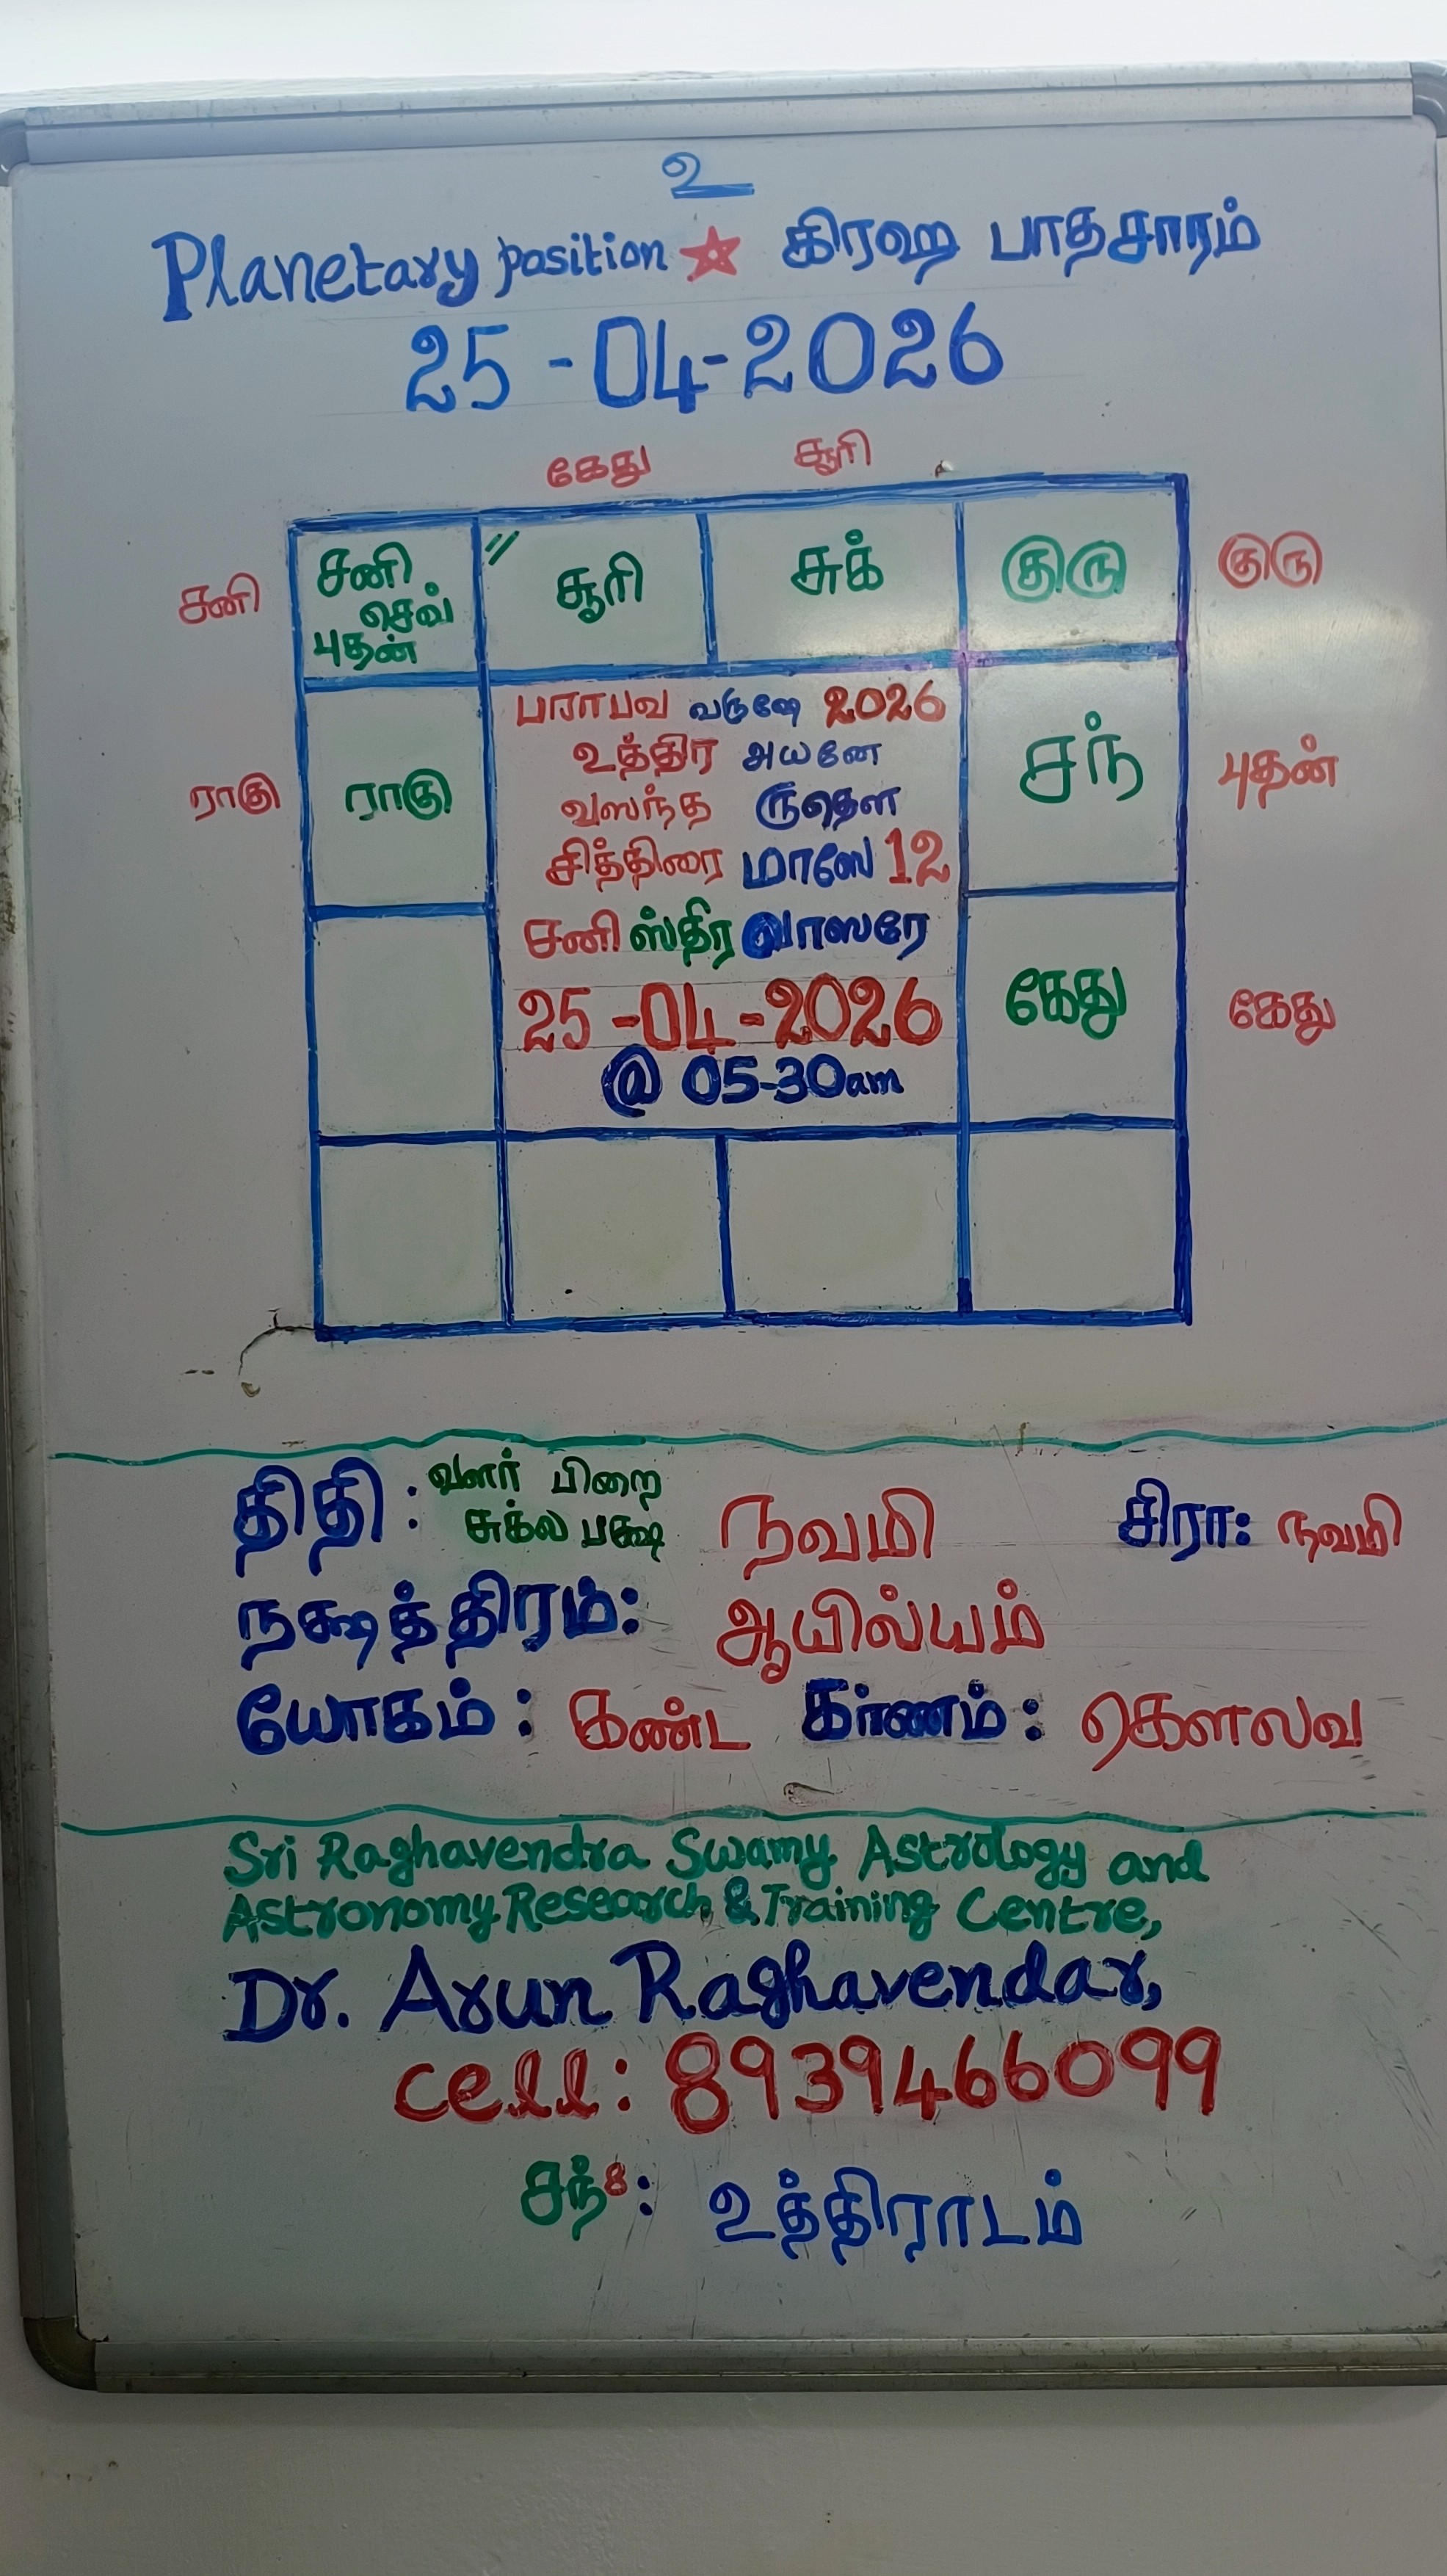 உ
Planetary position ☆ கிரஹ பாதசாரம்
25-04-2026
கேது சூரி
சனி சனி செவ் புதன் // சூரி சுக் குரு குரு
பராபவ வருஷே 2026
உத்திர அயனே
ராகு ராகு சந் புதன்
வஸந்த ருதௌ
சித்திரை மாஸே 12
சனி ஸ்திர வாஸரே
25-04-2026
கேது கேது
@ 05-30am
திதி: வளர் பிறை சுக்ல பக்ஷ நவமி சிரா: நவமி
நக்ஷத்திரம்: ஆயில்யம்
யோகம்: கண்ட கர்ணம்: கௌலவ
Sri Raghavendra Swamy Astrology and
Astronomy Research & Training Centre,
Dr. Arun Raghavendar,
cell: 8939466099
சந்8: உத்திராடம்